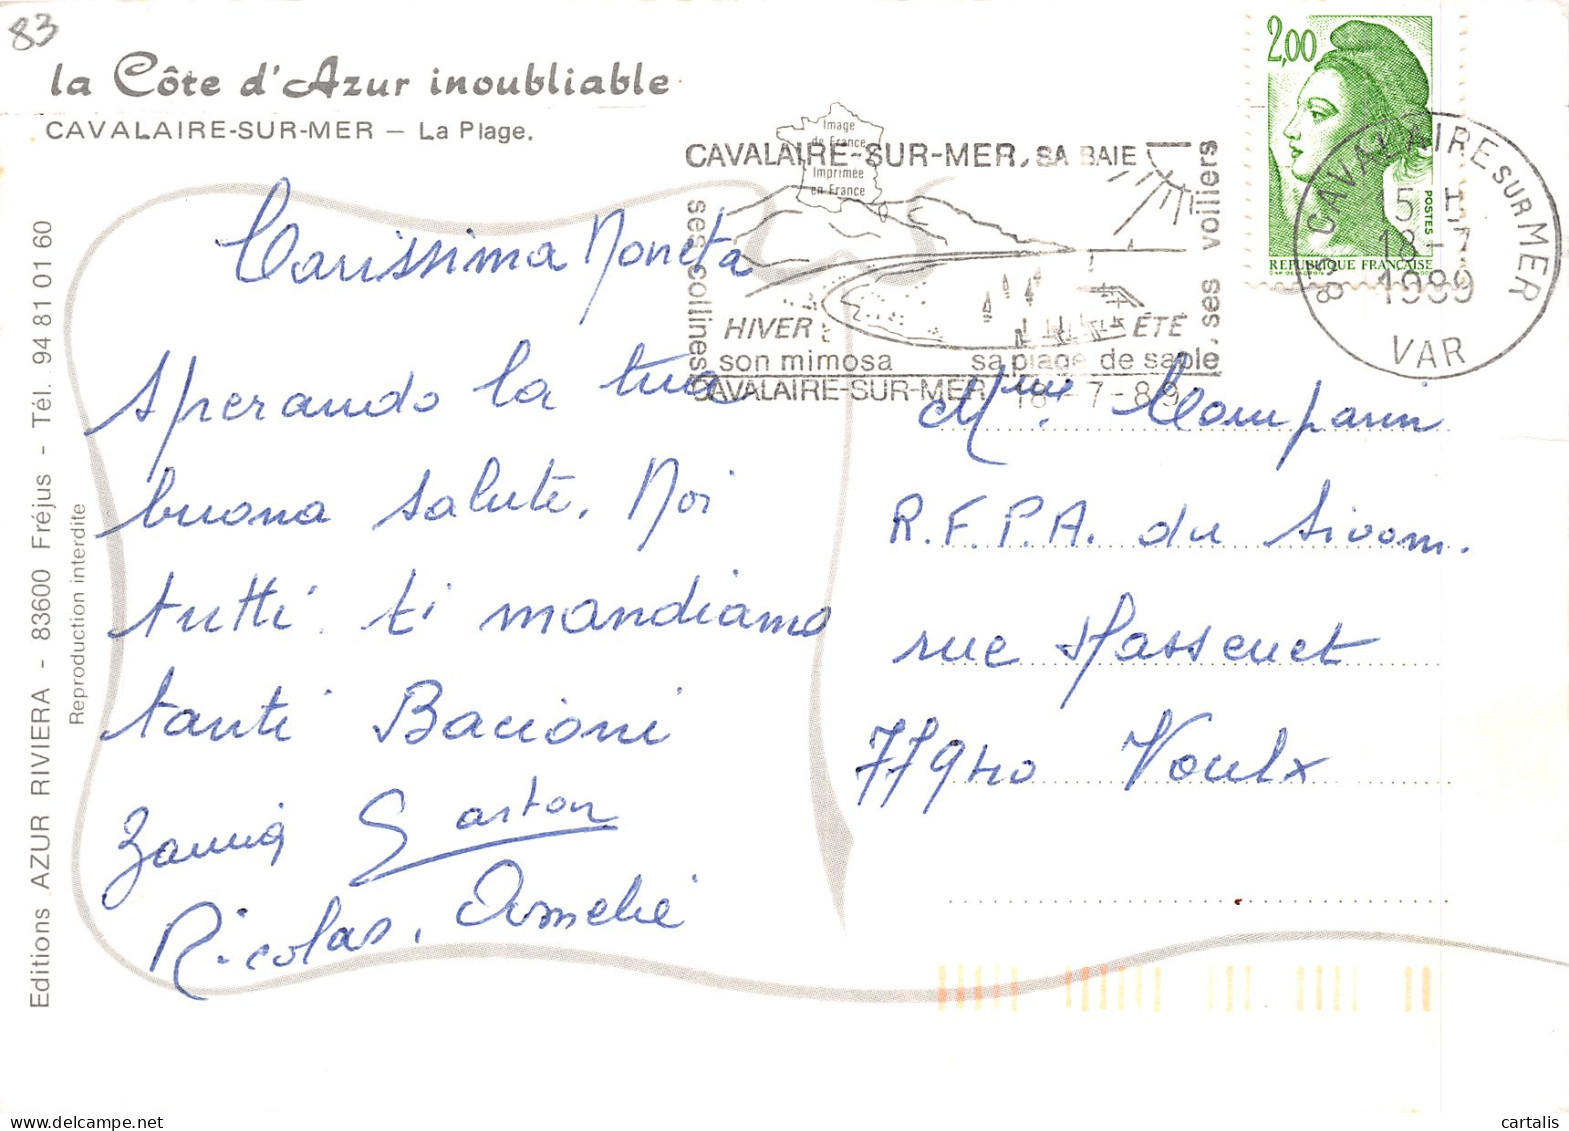 83
la Côte d'Azur inoubliable
CAVALAIRE-SUR-MER – La Plage.
2,00
POSTES
REPUBLIQUE FRANÇAISE
83 CAVALAIRE SUR MER
5 H
18-7
1989
VAR
Image
de France
Imprimée
en France
CAVALAIRE-SUR-MER, SA BAIE
ses collines
ses voiliers
HIVER
ÉTÉ
son mimosa
sa plage de sable
CAVALAIRE-SUR-MER 18-7-89
Carissima Noneta
Sperando la tua
buona salute. Noi
tutti ti mandiamo
tanti Bacioni
Gaston
Nicolas, Amelie
Mme Comparin
R.F.P.A. du Sivom.
rue Massenet
77940 Voulx
Editions AZUR RIVIERA - 83600 Fréjus - Tél. 94 81 01 60
Reproduction interdite
cartalis